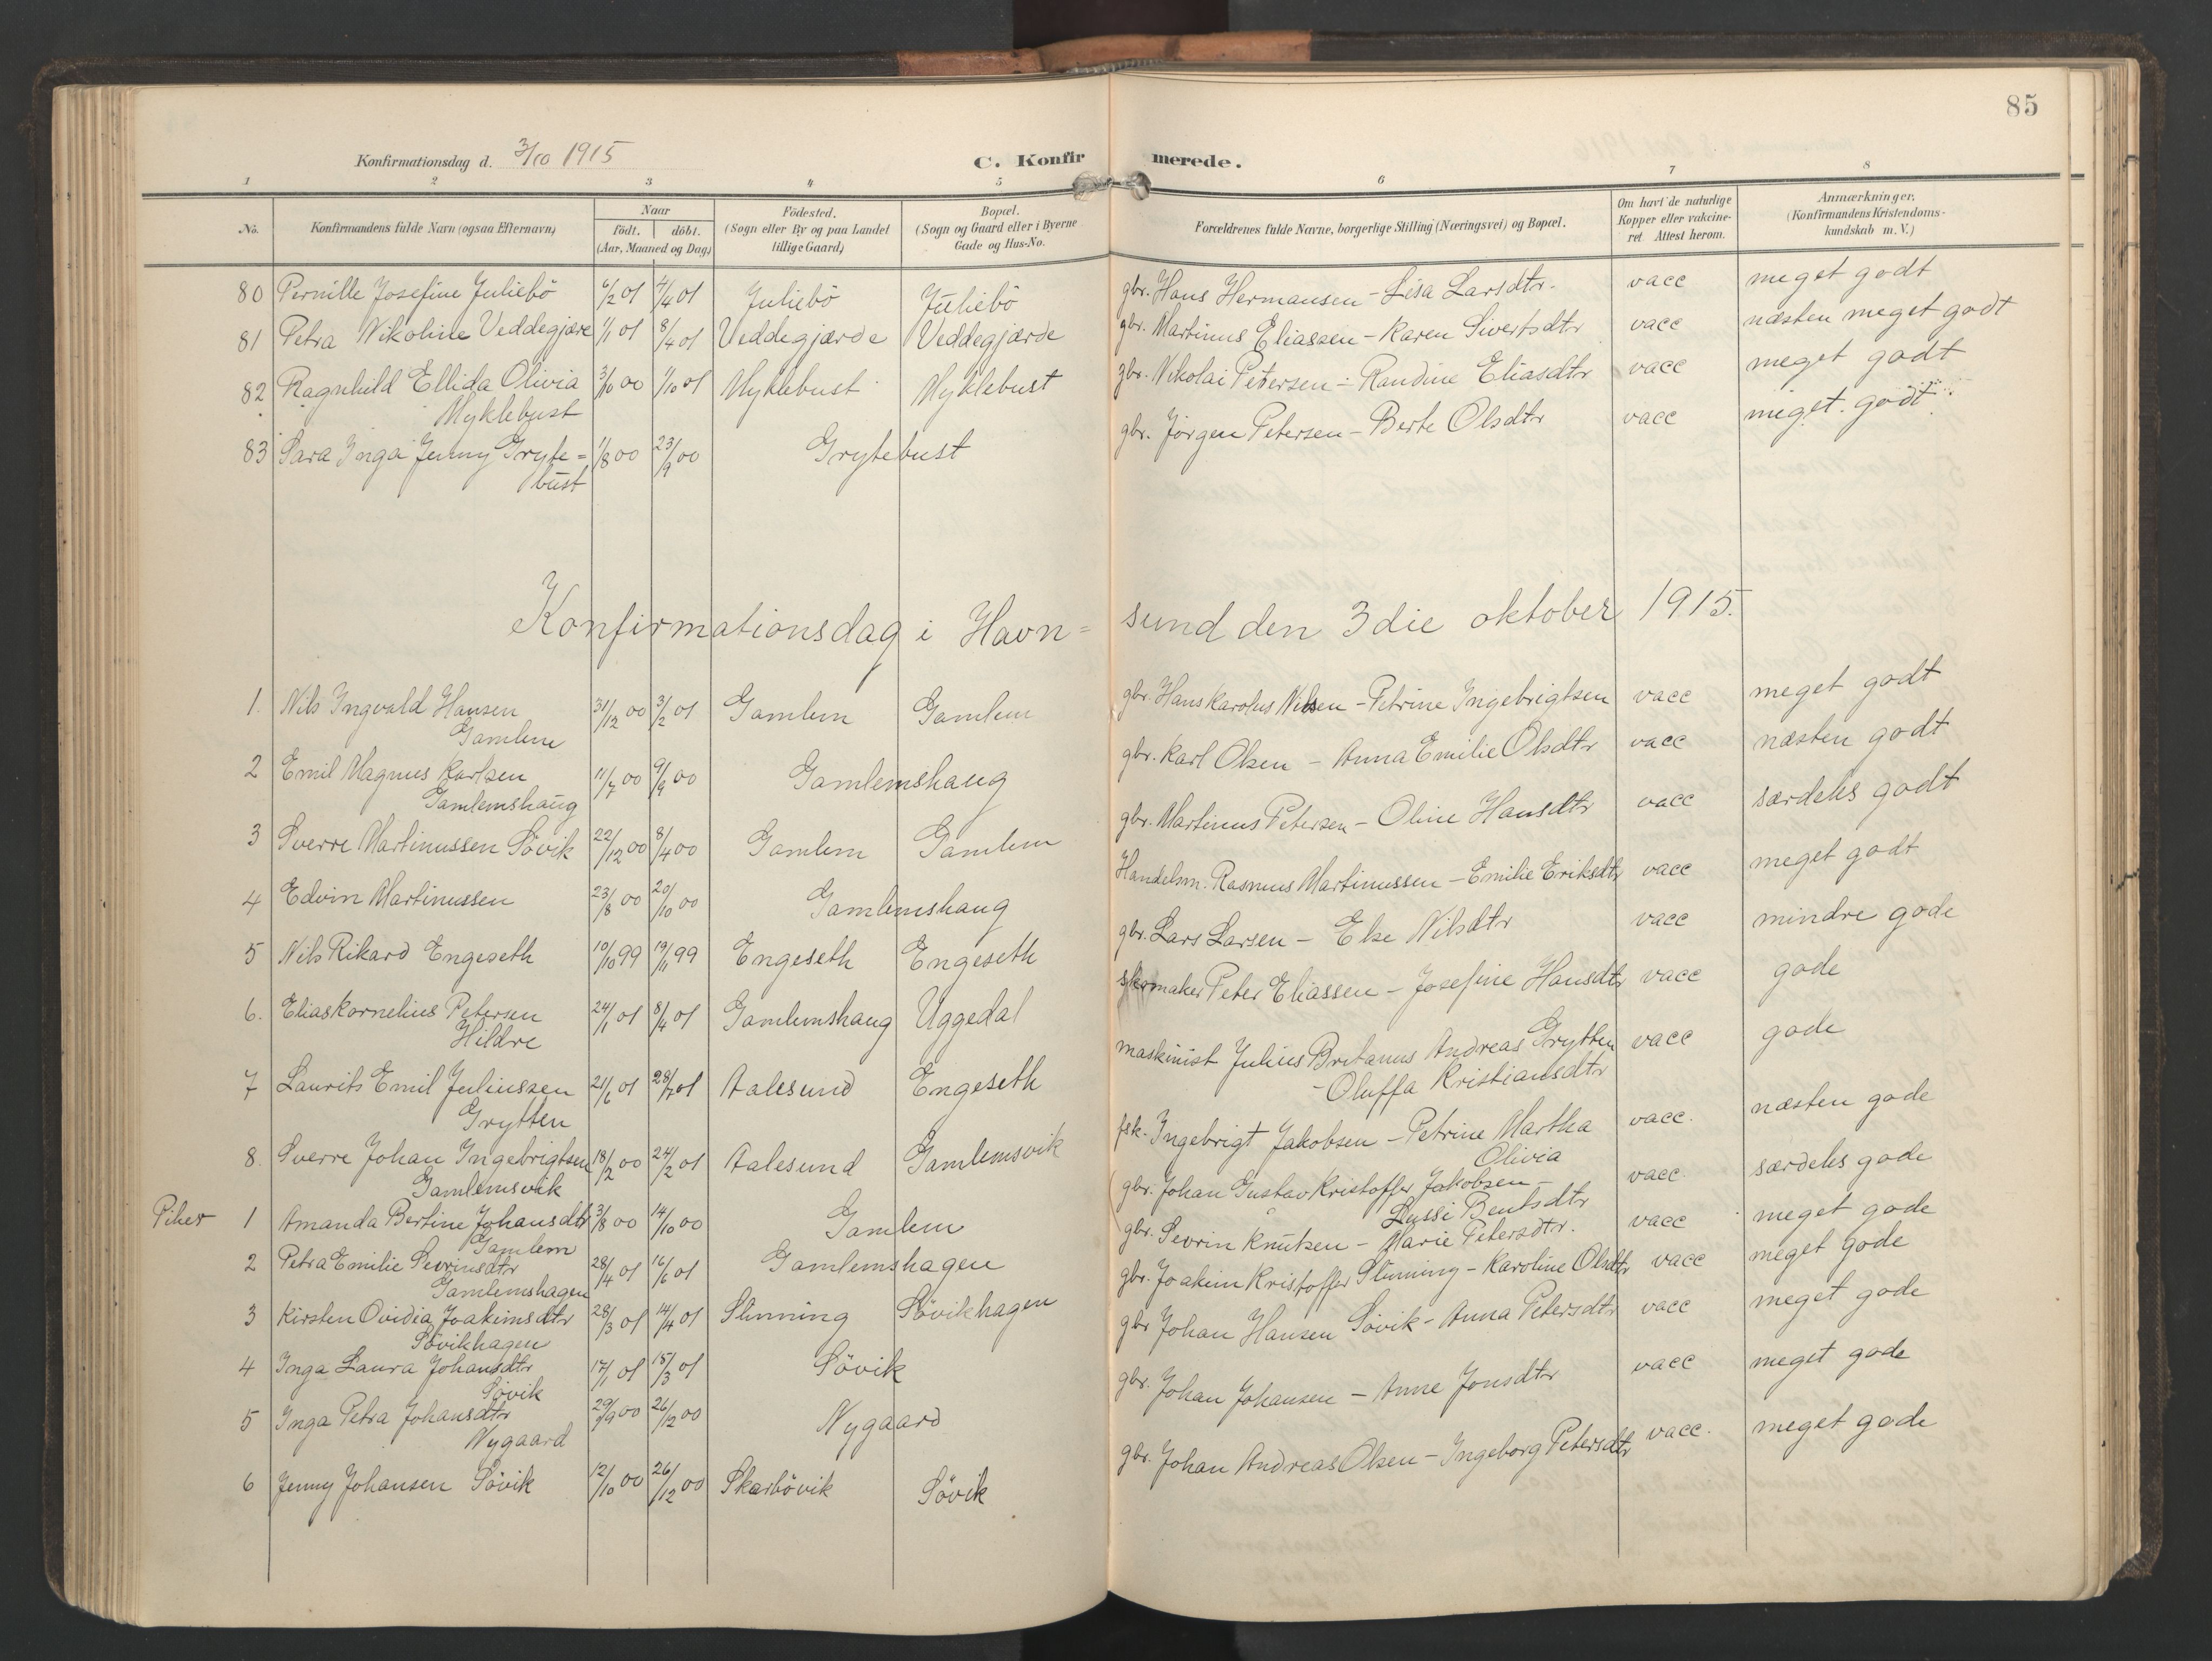 85
Konfirmationsdag d. 3/10 1915
C. Konfirmerede.
1 2 3 4 5 6 7 8
No. Konfirmandens fulde Navn (ogsaa Efternavn) Naar Født. døbt. (Aar, Maaned og Dag) Födested. (Sogn eller By og paa Landet tillige Gaard) Bopæl. (Sogn og Gaard eller i Byerne Gade og Hus-No. Forældrenes fulde Navne, borgerlige Stilling (Næringsvei) og Bopæl. Om havt de naturlige Kopper eller vakcineret Attest herom. Anmærkninger. (Konfirmandens Kristendomskundskab m.V.)
80 Pernille Josefine Juliebö 6/2 01 4/4 01 Juliebö Juliebö gbr. Hans Hermansen - Lisa Larsdtr. vacc meget godt
81 Petra Nikoline Veddegjære 1/1 01 8/4 01 Veddegjærde Veddegjærde gbr. Martinus Eliassen - Karen Sivertsdtr vacc næsten meget godt
82 Ragnhild Ellida Olivia 3/10 00 1/10 01 Myklebust Myklebust gbr. Nikolai Petersen - Randine Eliasdtr vacc meget godt
Myklebust
83 Sara Inga Jenny Gryte= 1/8 00 23/9 00 Grytebust gbr. Jörgen Petersen - Berte Olsdtr vacc meget godt
bust
Konfirmationsdag i Havn=sund den 3die oktober 1915.
1. Nils Ingvald Hansen 31/12 00 3/2 01 Gamlem Gamlem gbr. Hans Karolus Nilsen - Petrine Ingebrigtsen vacc meget godt
Gamlem
2 Emil Magnus Karlsen 11/7 00 9/9 00 Gamlemshaug gbr. Karl Olsen - Anna Emilie Olsdtr vacc næsten godt
Gamlemshaug
3 Sverre Martinussen Sövik 22/12 00 8/4 00 Gamlem Gamlem gbr. Martinus Petersen - Oline Hansdtr vacc særdeles godt
4 Edvin Martinussen 23/8 00 20/10 00 Gamlemshaug Handelsm. Rasmus Martinussen - Emilie Eriksdtr vacc meget godt
5 Nils Rikard Engeseth 10/10 99 19/11 99 Engeseth Engeseth gbr. Lars Larsen - Else Nilsdtr vacc mindre gode
6. Elias Kornelius Petersen 24/1 01 8/4 01 Gamlemshaug Uggedal skomaker Peter Eliassen - Josefine Hansdtr vacc gode
Hildre
7 Laurits Emil Juliussen 21/6 01 28/7 01 Aalesund Engeseth maskinist Julius Britanus Andreas Grytten vacc gode
Grytten - Oluffa Kristiansdtr
8. Sverre Johan Ingebrigtsen 18/2 00 24/2 01 Aalesund Gamlemsvik fsk. Ingebrigt Jakobsen - Petrine Martha vacc. næsten gode
Gamlemsvik Olivia
Piker 1 Amanda Bertine Johansdtr 3/8 00 14/10 00 Gamlem gbr. Johan Gustav Kristoffer Jakobsen - vacc. særdeles gode
Gamlem Lussi Bentsdtr
2 Petra Emilie Sevrinsdtr 28/4 01 16/6 01 Gamlemshagen gbr. Sevrin Knutsen - Marie Petersdtr. vacc meget gode
Gamlemshagen
3 Kirsten Ovidia Joakimsdtr 28/3 01 14/4 01 Slinning Sövikhagen gbr. Joakim Kristoffer Slinning - Karoline Olsdtr vacc meget gode
Sövikhagen
4 Inga Laura Johansdtr 17/1 01 15/3 01 Sövik gbr Johan Hansen Sövik - Anna Petersdtr vacc meget gode
Sövik
5 Inga Petra Johansdtr 29/9 00 26/12 00 Nygaard gbr. Johan Johansen - Anne Jonsdtr vacc meget gode
Nygaard
6 Jenny Johansen Sövik 12/10 00 26/12 00 Skarbövik Sövik gbr. Johan Andreas Olsen - Ingeborg Petersdtr vacc. meget gode